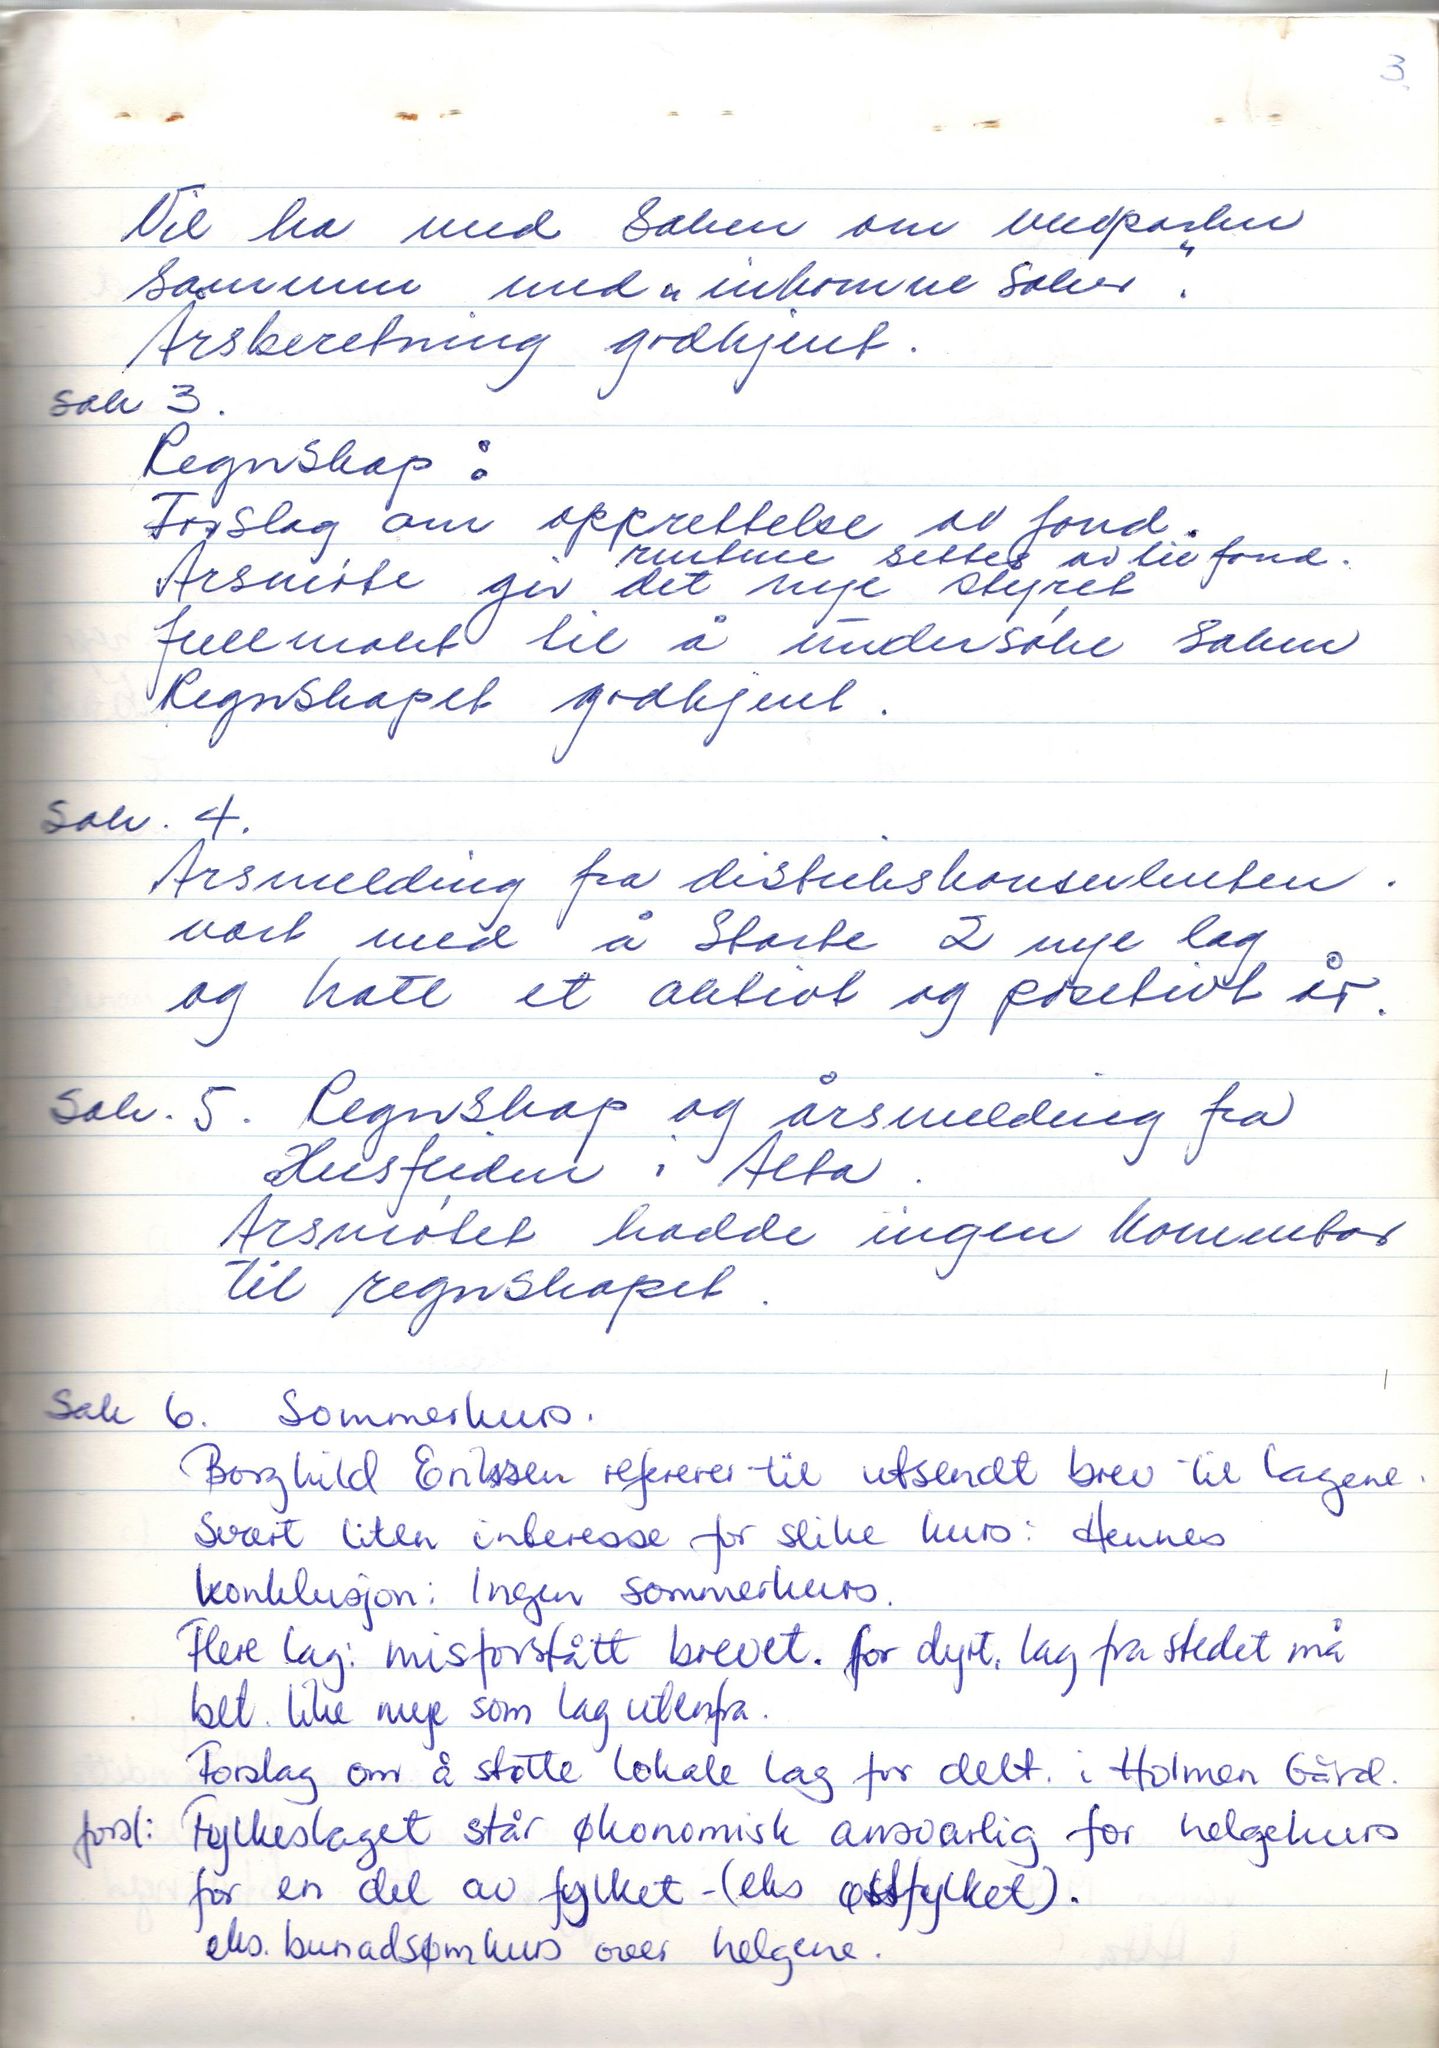 3
Vil ha med Saken om
Sammen med "inkomne Saker".
Årsberetning godkjent.
Sak 3.
Regnskap:
Forslag om opprettelse av fond.
rentene settes av til fond.
Årsmøte gir det nye styret
fullmakt til å undersøke Saken
Regnskapet godkjent.
Sak. 4.
Årsmelding fra distrikskonsulenten.
vært med å Starte 2 nye lag
og hatt et aktivt og positivt år.
Sak. 5. Regnskap og årsmelding fra
Husfliden i Alta.
Årsmøtet hadde ingen kommentar
til regnskapet.
Sak 6. Sommerkurs.
Borghild Erikssen referer til utsendt brev til lagene.
Svært liten interesse for slike kurs: Hennes
konklusjon: Ingen sommerkurs.
Flere lag: misforstått brevet. for dyrt, lag fra stedet må
bet. like mye som lag utenfra.
Forslag om å støtte lokale lag for delt. i Holmen Gård.
forsl: Fylkeslaget står økonomisk ansvarlig for helgekurs
for en del av fylket - (eks østfylket).
eks. bunadsømkurs over helgene.